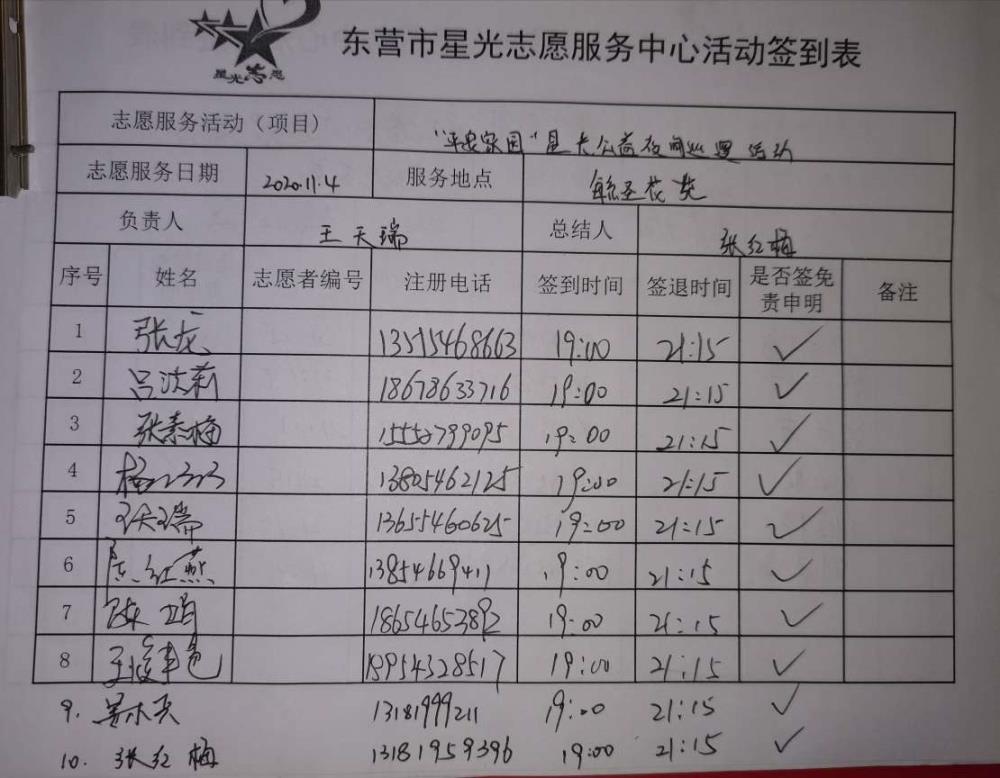 星光志愿
东营市星光志愿服务中心活动签到表
志愿服务活动（项目） "平安家园"星光公益夜间巡逻活动
志愿服务日期 2020.11.4 服务地点
负责人 王天瑞 总结人 张红梅
序号 姓名 志愿者编号 注册电话 签到时间 签退时间 是否签免责申明 备注
1 张龙 13575468663 19:00 21:15 ✓
2 吕法莉 18678633716 19:00 21:15 ✓
3 张素梅 15552799095 19:00 21:15 ✓
4 13805462125 19:00 21:15 ✓
5 王天瑞 13655460625 19:00 21:15 ✓
6 陈红燕 13854669411 19:00 21:15 ✓
7 陈娟 18654653892 19:00 21:15 ✓
8 15954328517 19:00 21:15 ✓
9. 13181999211 19:00 21:15 ✓
10. 张红梅 13181959396 19:00 21:15 ✓